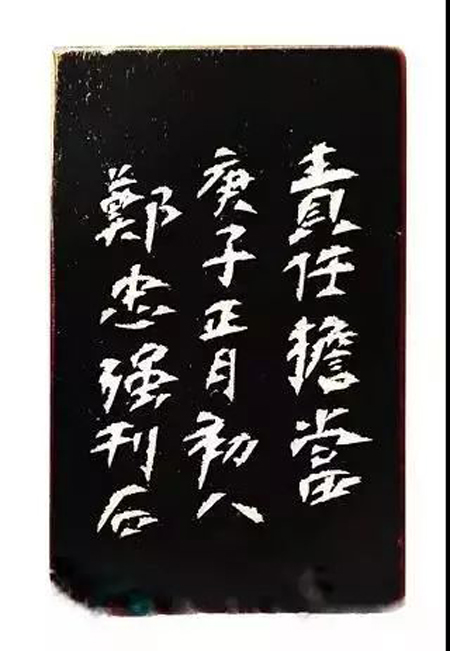 責任擔當
庚子正月初八
鄭忠强刊石